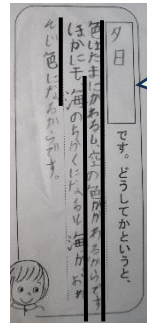 夕日
です。どうしてかというと、
色はたまにかわるし、空の色がかわるからです
ほかにも、海のちかくになるも、海が、おれ
んじ色になるからです。